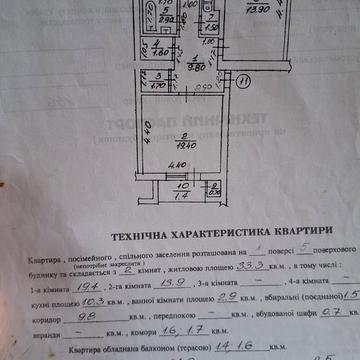 5
2.90
7
1.50
13.90
1.05
4
1.60
1
9.80
3
1.70
2.90
11
4.40
2
19.40
4.40
10
1.4
ТЕХНІЧНА ХАРАКТЕРИСТИКА КВАРТИРИ
Квартира , посімейного , спільного заселення розташована на 1 поверсі 5 поверхового
(непотрібне закреслити)
будинку та складається з 2 кімнат , житловою площею 33.3 кв.м , в тому числі :
1-а кімната 19.4 кв.м , 2-а кімната 13.9 кв.м , 3-я кімната – кв.м , 4-а кімната –
кухні площею 10.3 кв.м , ванної кімнати площею 2.9 кв.м , вбиральні (поєднаної) 1.5
коридор 9.8 кв.м , передпокою – кв.м , вбудованої шафи 0.7 кв.м
веранди – кв.м , комори 1.6, 1.7 кв.м
Квартира обладнана балконом (терасою) 1.4 1.6 кв.м